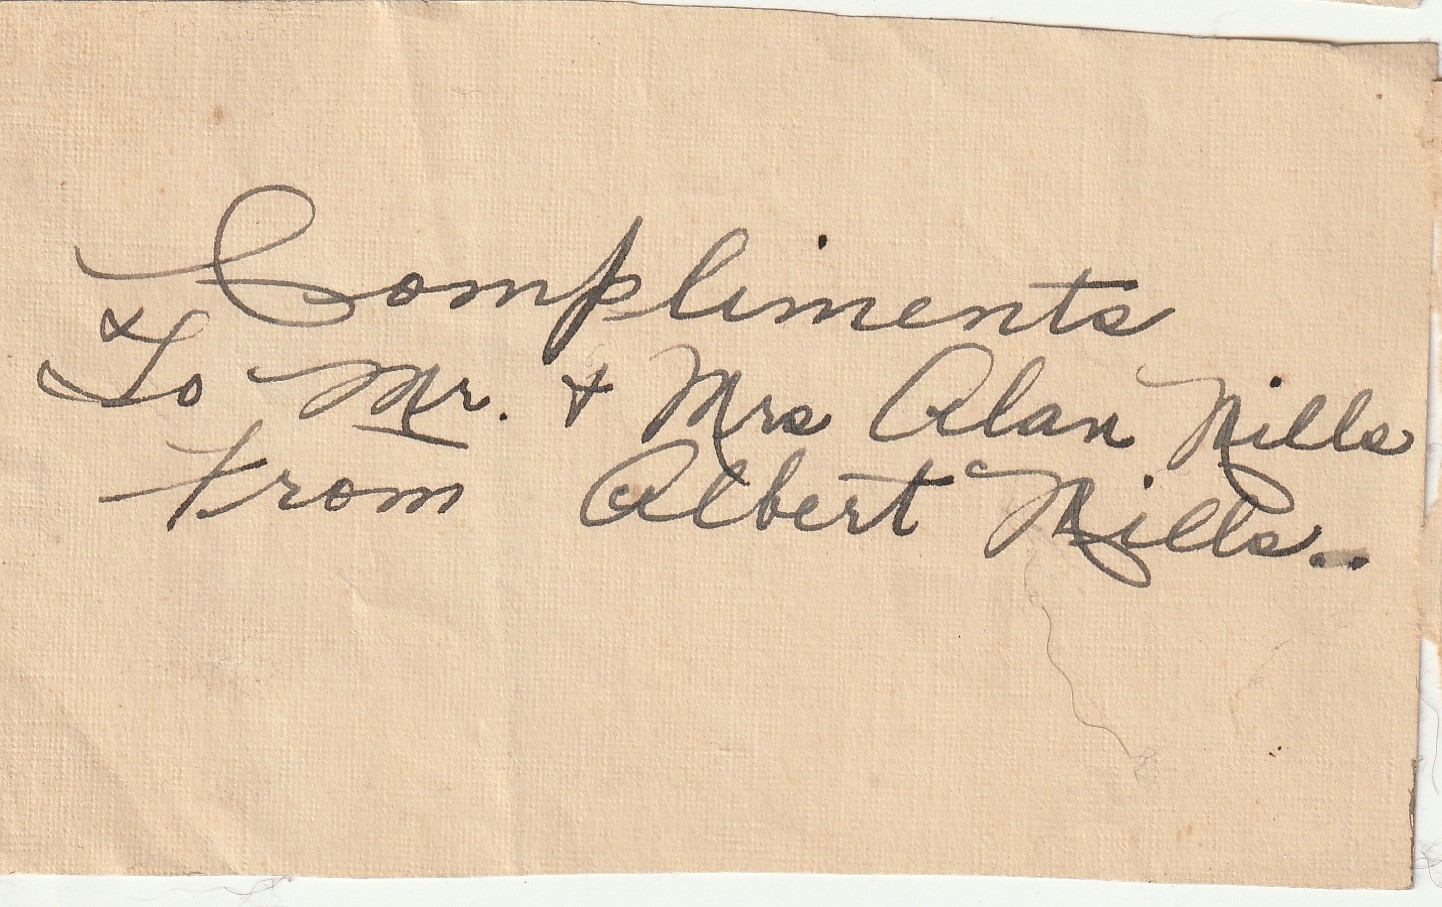 Compliments
To Mr. + Mrs Alan Mills
From Albert Mills..